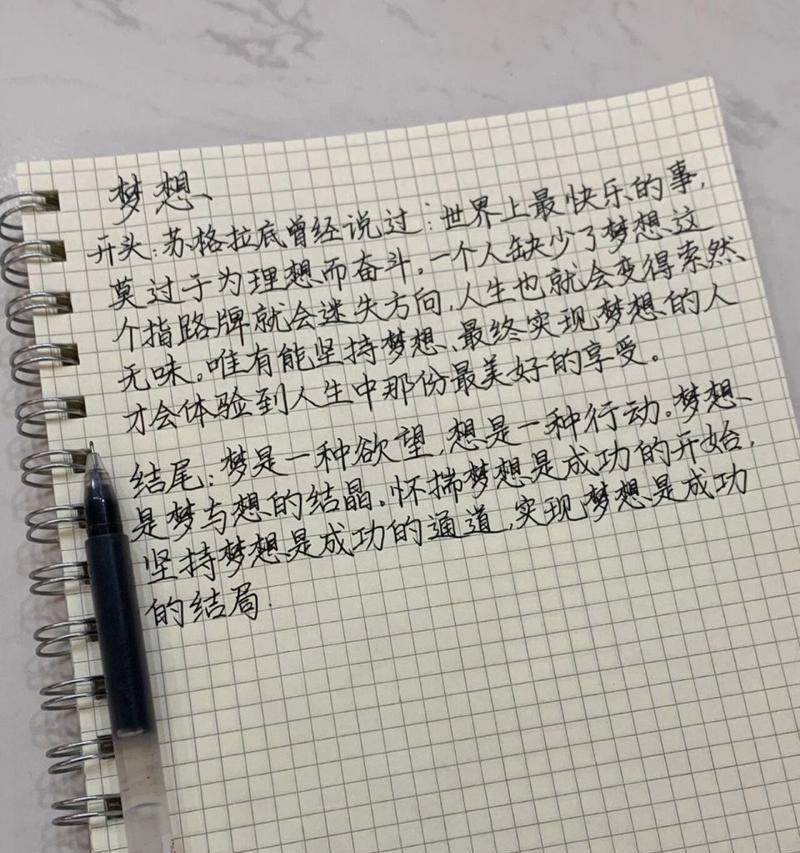 梦想
开头:苏格拉底曾经说过:世界上最快乐的事,
莫过于为理想而奋斗。一个人缺少了梦想这
个指路牌就会迷失方向,人生也就会变得索然
无味。唯有能坚持梦想、最终实现梦想的人
才会体验到人生中那份最美好的享受。
结尾:梦是一种欲望,想是一种行动。梦想
是梦与想的结晶。怀揣梦想是成功的开始,
坚持梦想是成功的通道,实现梦想是成功
的结局.